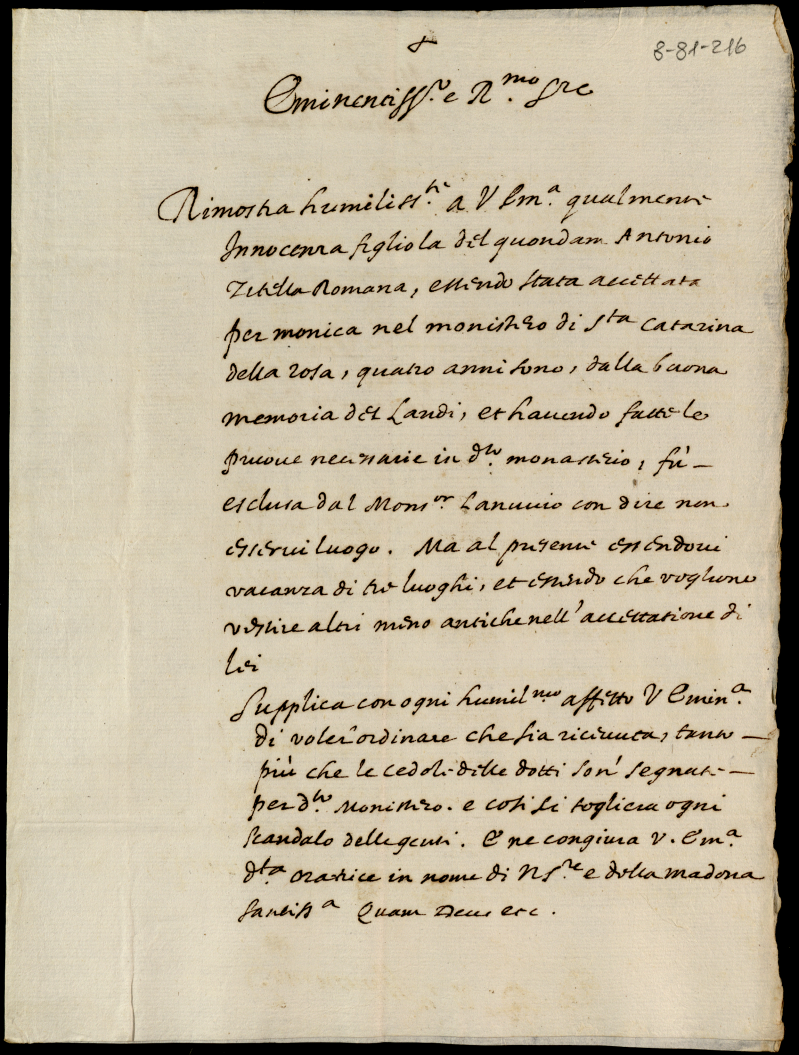 8-81-216
Eminentiss.o e R.mo Sre
Rimostra humiliss.te a V Em.a qualmente
Innocenza figliola del quondam Antonio
Zitella Romana, essendo stata accettata
per monica nel monistero di Sta Catarina
della rosa, quatro anni sono, dalla buona
memoria del Landi, et havendo fatte le
pruove necessarie in d.to monasterio, fù
esclusa dal Mons.or Lanuvio con dire non
esservi luogo. Ma al presente essendovi
vacanza di tre luoghi, et essendo che vogliono
vestire altri meno antiche nell'accettatione di
lei
Supplica con ogni humil.mo affetto V Emin.a
di voler ordinare che sia ricevuta, tanto
più che le cedole delle dotti son' segnate
per d.to Monistero. e così si togliera ogni
scandalo delle genti. E ne congiura V. Em.a
d.ta oratrice in nome di N S.re e della madona
santiss.a Quam Deus etc.